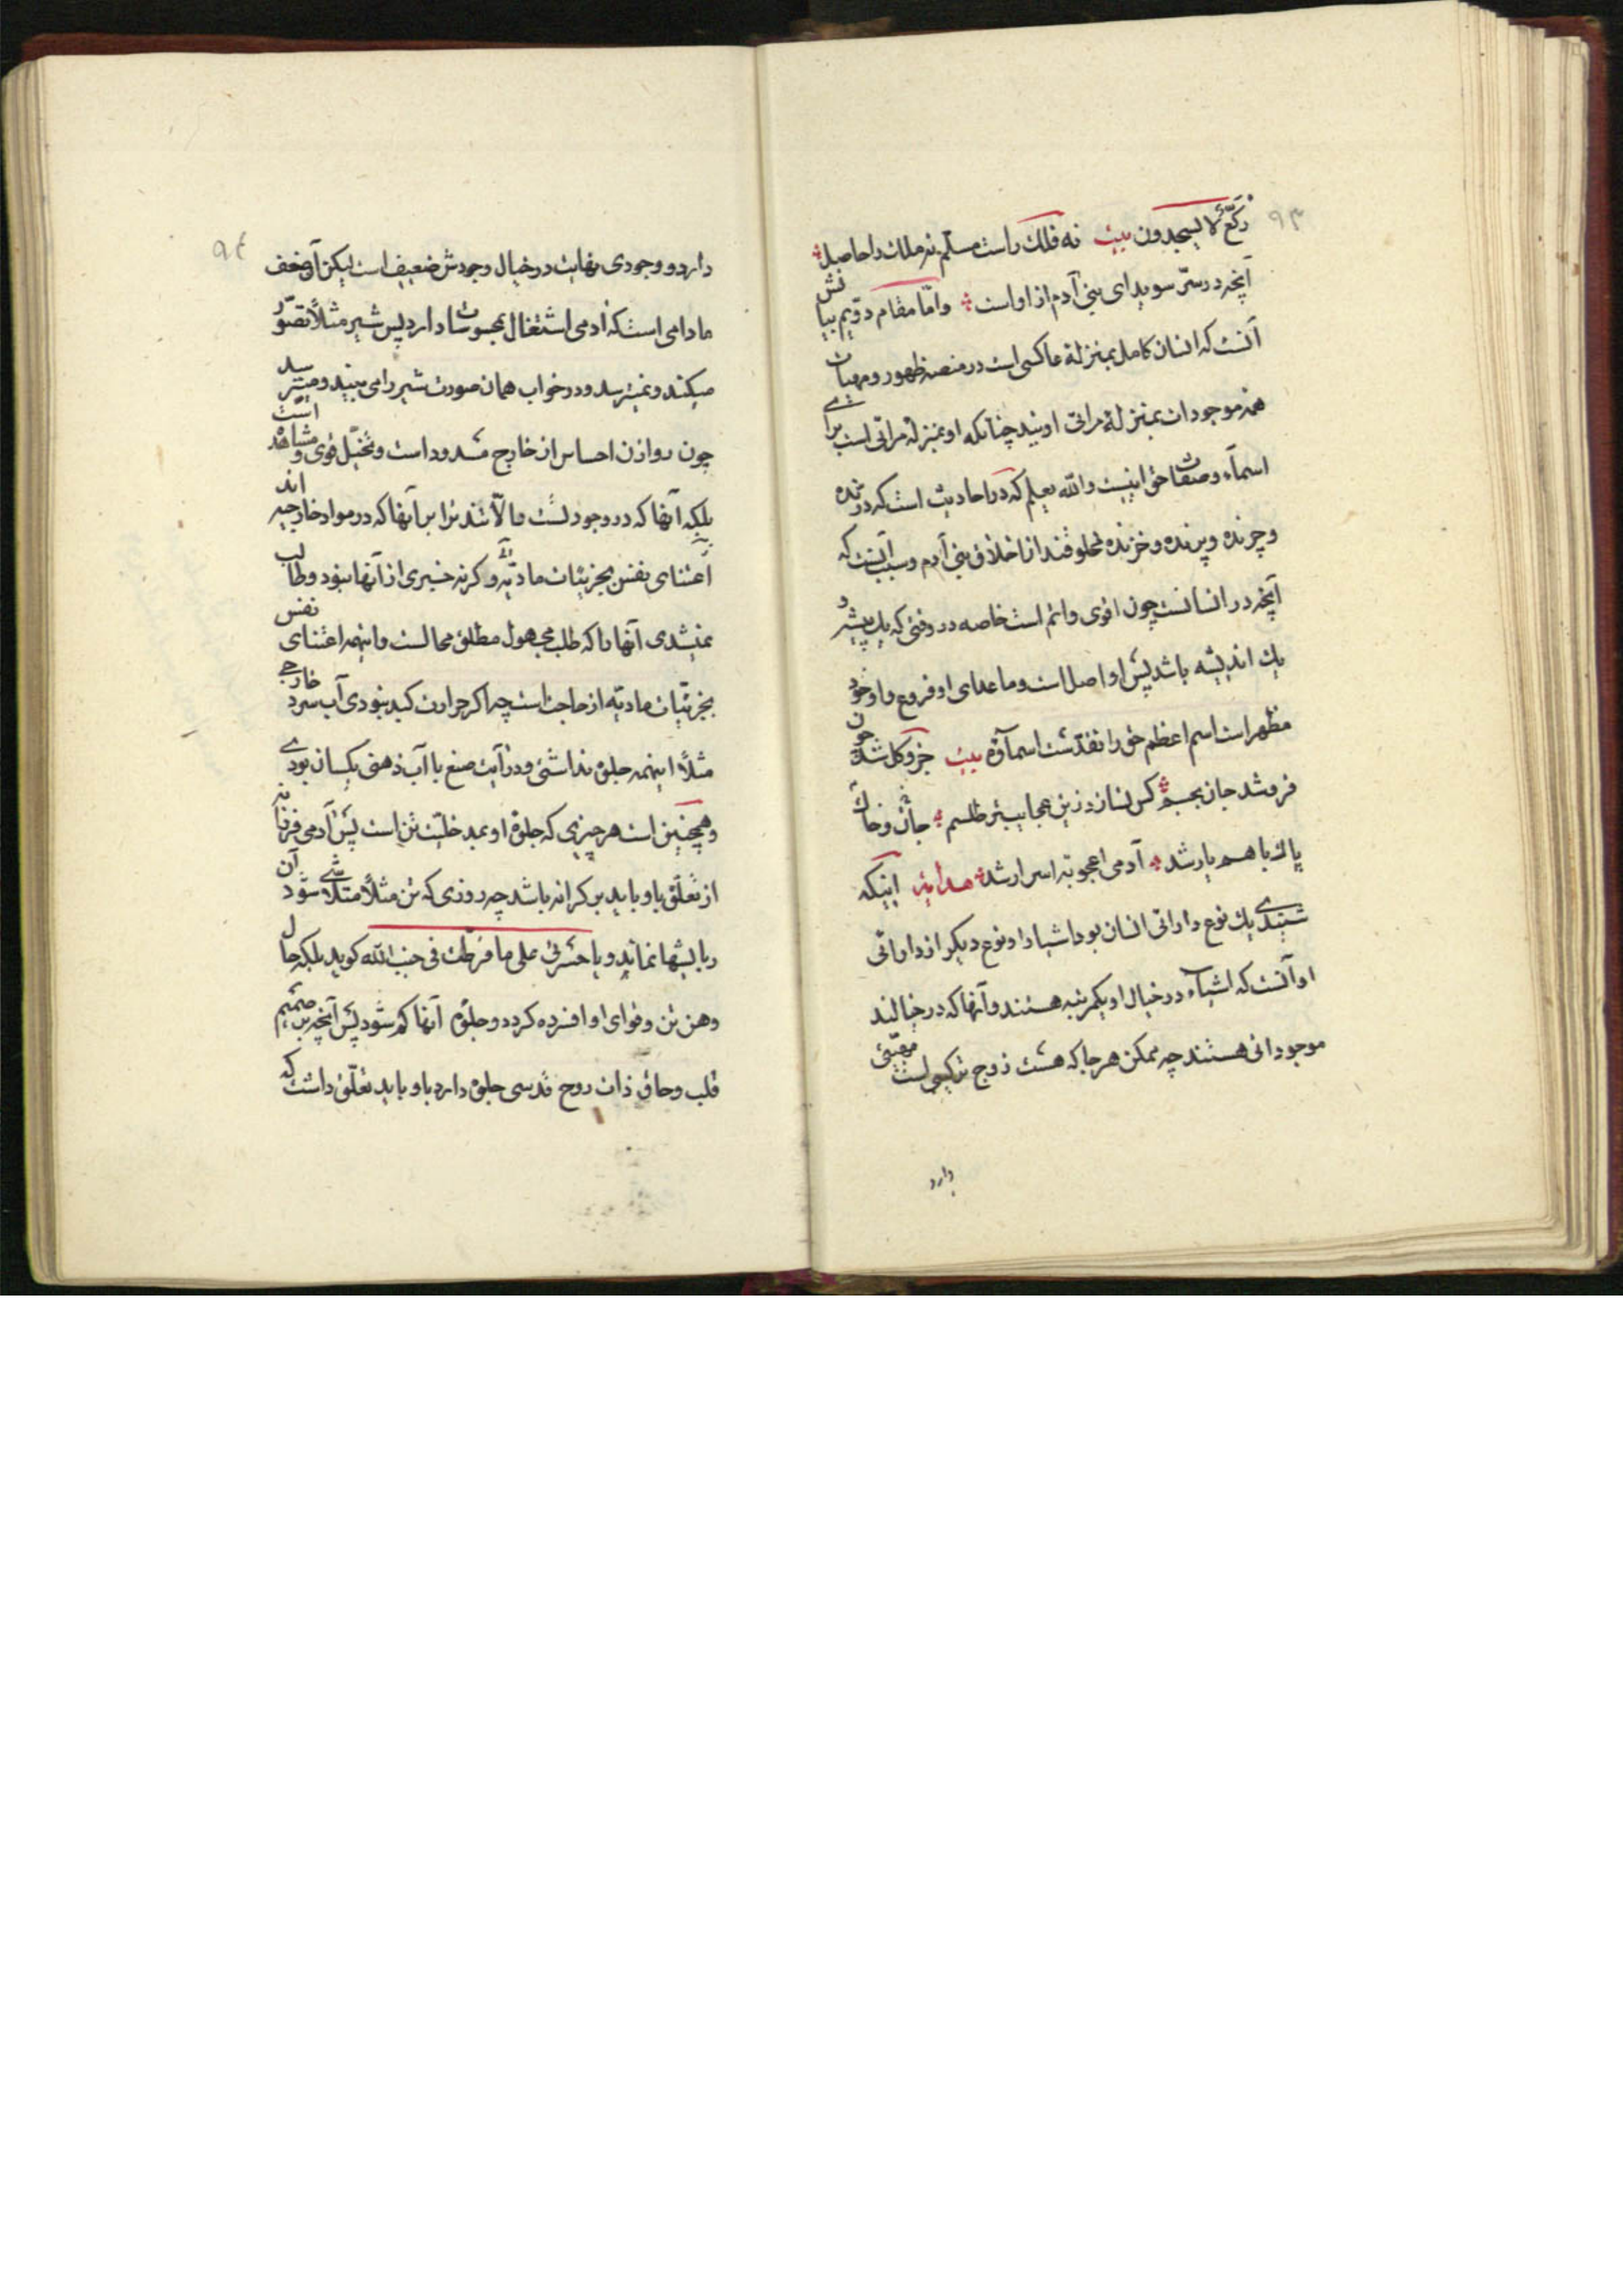 ۹۳
رکّع لا یسجدون بیت نه فلک راست مسلّم نه ملک را حاصل
آنچه در سرّ سویدای بنی آدم از او است وامّا مقام دوّیم بیانش
آنست که انسان کامل بمنزلهٔ عاکسی است در منصهٔ ظهور و مهیات
همه موجودات بمنزلهٔ مرائی اویند چنانکه او بمنزلهٔ مراتی است برای
اسمآء و صفات حق اینست والله یعلم که در احادیث است که درنده
و چرنده و پرنده و خزنده مخلوقند از اخلاق بنی آدم و سبب آنست که
آنچه در انسانست چون اقوی و اتم است خاصه در وقتی که یک پیشه و
یک اندیشه باشد پس او اصل است و ماعدای او فروع و او خود
مظهر است اسم اعظم حق را تقدّست اسمآؤه بیت جزو کل شد چون
فرو شد جان بجسم کس نسازد زین عجایبتر طلسم جان و خاک
پاک با هم یار شد آدمی اعجوبهٔ اسرار شد هدایة اینکه
شنیدی یک نوع دارائی انسان بود اشیا را و نوع دیگر از دارائی
او آنست که اشیاء در خیال او یکمرتبه هستند و آنها که در خیالند
موجوداتی هستند چه ممکن هر جا که هست زوج ترکیبی است مهیّتی
دارد
۹۴
دارد و وجودی نهایت در خیال وجودش ضعیف است لیکن آن ضعف
مادامی است که ادمی اشتغال بمحسوسات دارد پس شیر مثلاً تصوّر
میکند و نمیترسد و در خواب همان صورت شیر را می بیند و میترسد
چون روازن احساس از خارج مسدود است و تخیّل قوی و مشاهد است
بلکه آنها که در وجود تست و مالآنند ترا برآنها که در مواد خارجیه اند
اعتنای نفس بجزئیات مادیّه و گرنه خبری از آنها نبود و طالب
نمیشدی آنها را که طلب مجهول مطلق محالست و اینهمه اعتنای نفس
بجزئیّات مادیّه از حاجت است چه اگر حرارت کبد نبودی آب سرد خارجی
مثلاً اینهمه جلوه نداشتی و در آیت صنع با آب ذهنی یکسان بودی
و همچنین است هر چیزی که جلوهٔ او بمدخلیّت تن است پس آدمی فرزانه
از تعلّق باو باید بر کرانه باشد چه روزی که تن مثلاً متلاشی شود آن
ربایشها نماید و یا حسرتی علی ما فرطت فی جنب الله گوید بلکه حال
وهن تن و قوای او افسرده کرده و جلوهٔ آنها کم شود پس آنچه بر صمیم
قلب و حاق ذات روح قدسی جلوه دارد باو باید تعلّق داشت که